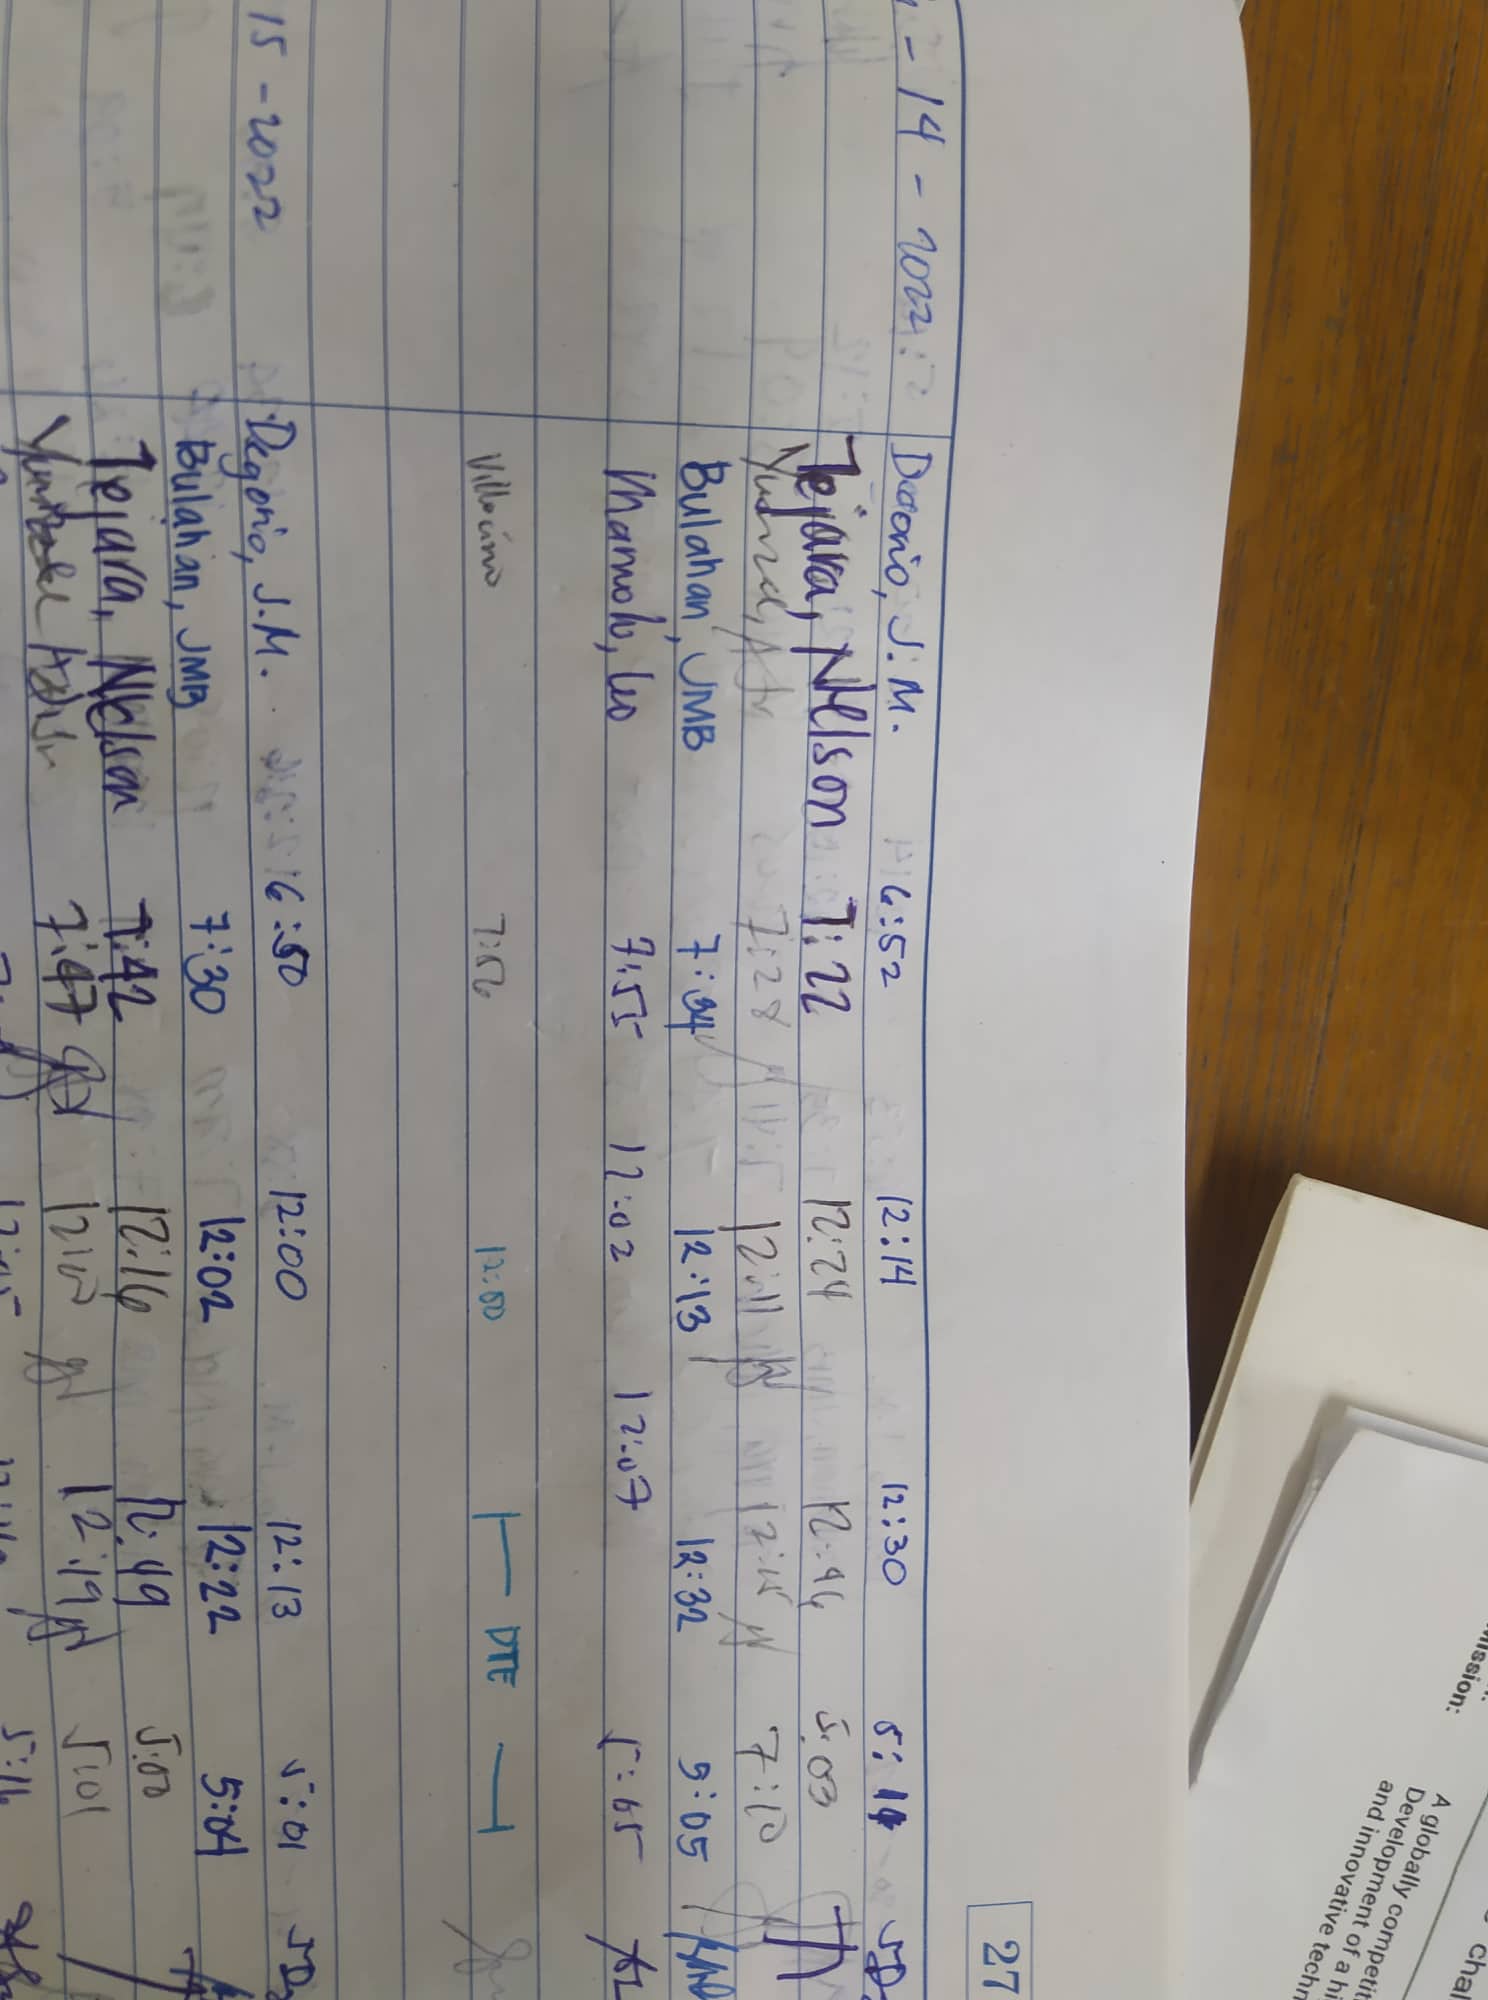 27
- 14 - 2022
Degorio, J.M. 6:52 12:14 12:30 5:14
Tejara, Nelson 7:22 12:24 12:46 5:03
7:28 12:11 7:10
Bulahan, JMB 7:34 12:13 12:32 5:05
Mamolo, Leo 7:55 12:02 12:07 5:05
Villacino 7:56 12:00 DTE
15 - 2022 Degorio, J.M. 6:50 12:00 12:13 5:01
Bulahan, JMB 7:30 12:02 12:22 5:04
Tejara, Nelson 7:42 12:16 12:49 5:00
7:47 12:19 5:01
5:16
Mission:
A globally competit
Development of a hi
and innovative techn